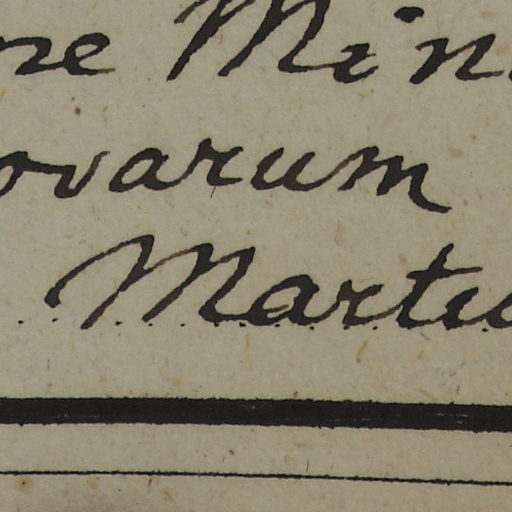 ne Min
ovarum
Martu